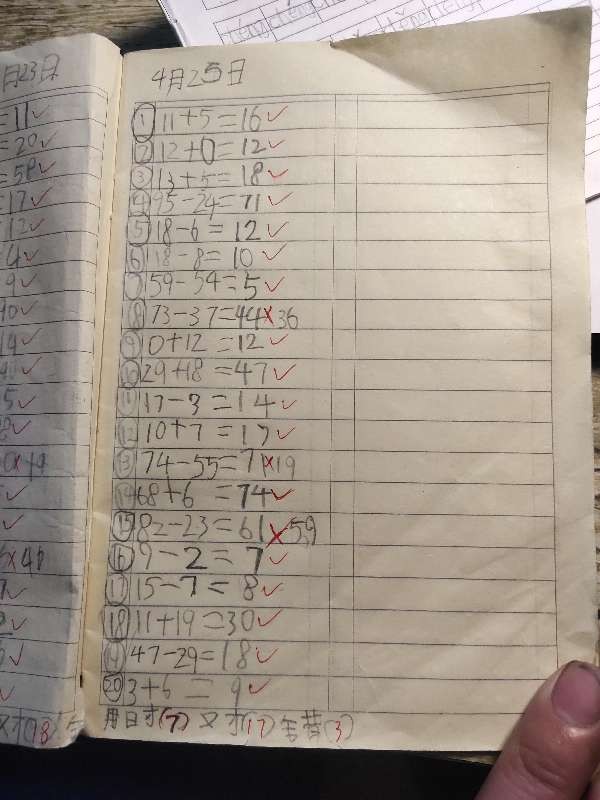 月23日
=11✓
=20✓
=58✓
=17✓
=12✓
=4✓
9✓
10✓
14✓
5✓
✓
×19
✓
✓
×48
✓
✓
✓
✓
对(18)
4月25日
① 11+5=16✓
② 12+0=12✓
③ 13+5=18✓
④ 95-24=71✓
⑤ 18-6=12✓
⑥ 18-8=10✓
⑦ 59-54=5✓
⑧ 73-37=44×36
⑨ 0+12=12✓
⑩ 29+18=47✓
⑪ 17-3=14✓
⑫ 10+7=17✓
⑬ 74-55=71×19
⑭ 68+6=74✓
⑮ 82-23=61×59
⑯ 9-2=7✓
⑰ 15-7=8✓
⑱ 11+19=30✓
⑲ 47-29=18✓
⑳ 3+6=9✓
用时(7) 对(17) 错(3)